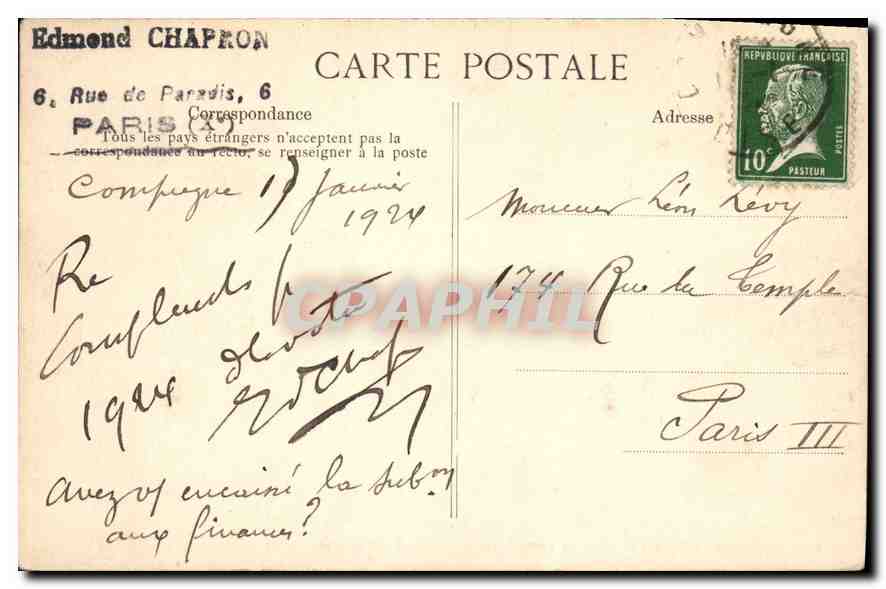 Edmond CHAPRON
6, Rue de Paradis, 6
PARIS (Xe)
CARTE POSTALE
Correspondance
Tous les pays étrangers n'acceptent pas la
correspondance au recto, se renseigner à la poste
Adresse
REPUBLIQUE FRANÇAISE
POSTES
10c
PASTEUR
Compiegne 17 Janvier
1924
Re
Compliments p
1924 dévoué
Monsieur Léon Lévy
174 Rue du Temple
Paris III
Avez vs encaissé la subon
aux finances?
CPAPHIL